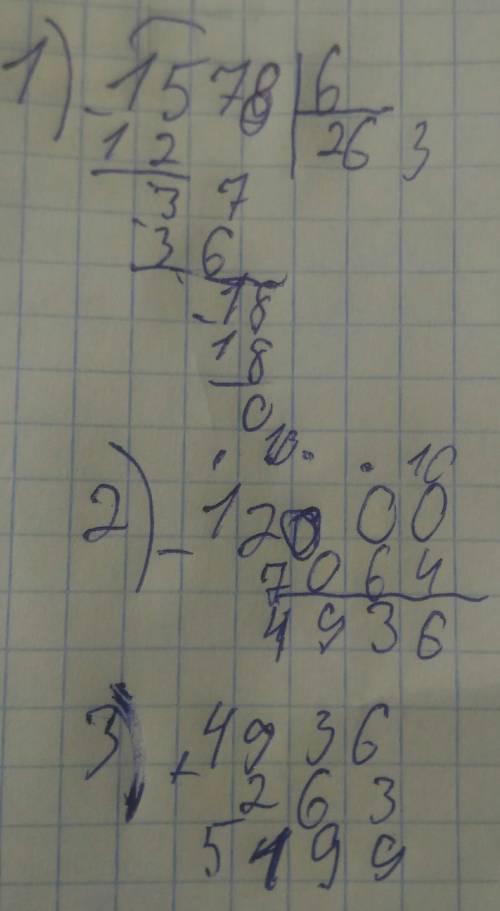 1) - 1578 | 6
12 | 263
37
36
- 18
18
0
10 10
2) - 12000
7064
4936
3) + 4936
263
5199